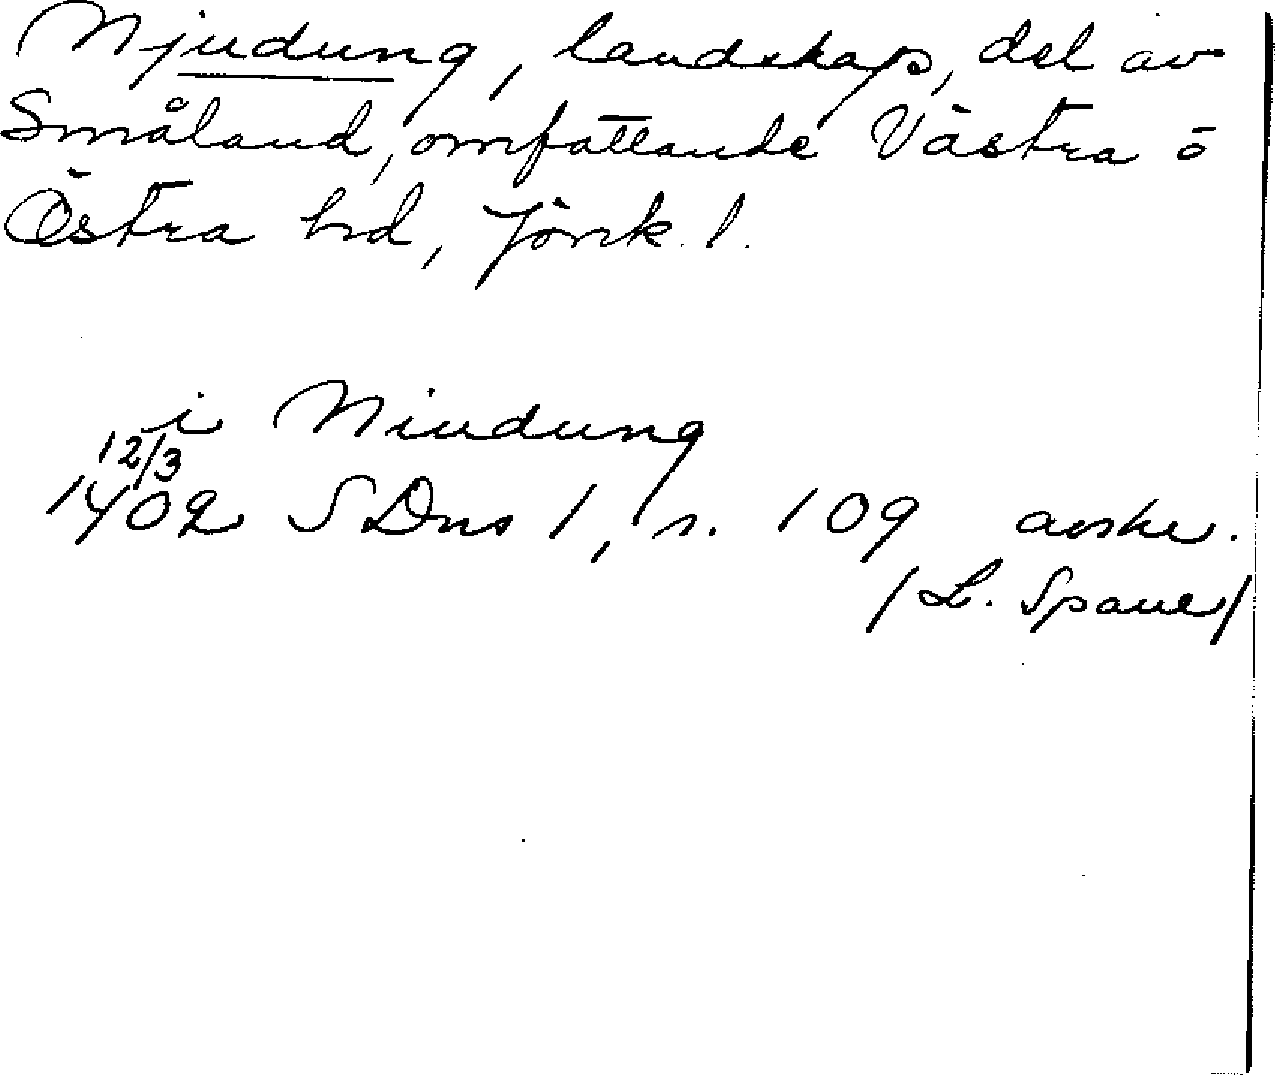 Njudung, landskap, del av
Småland, omfattande Västra o
Östra hd, Jönk. l.
i Niudung
12/3
1402 SDns 1, s. 109 avskr.
/L. Spaner/